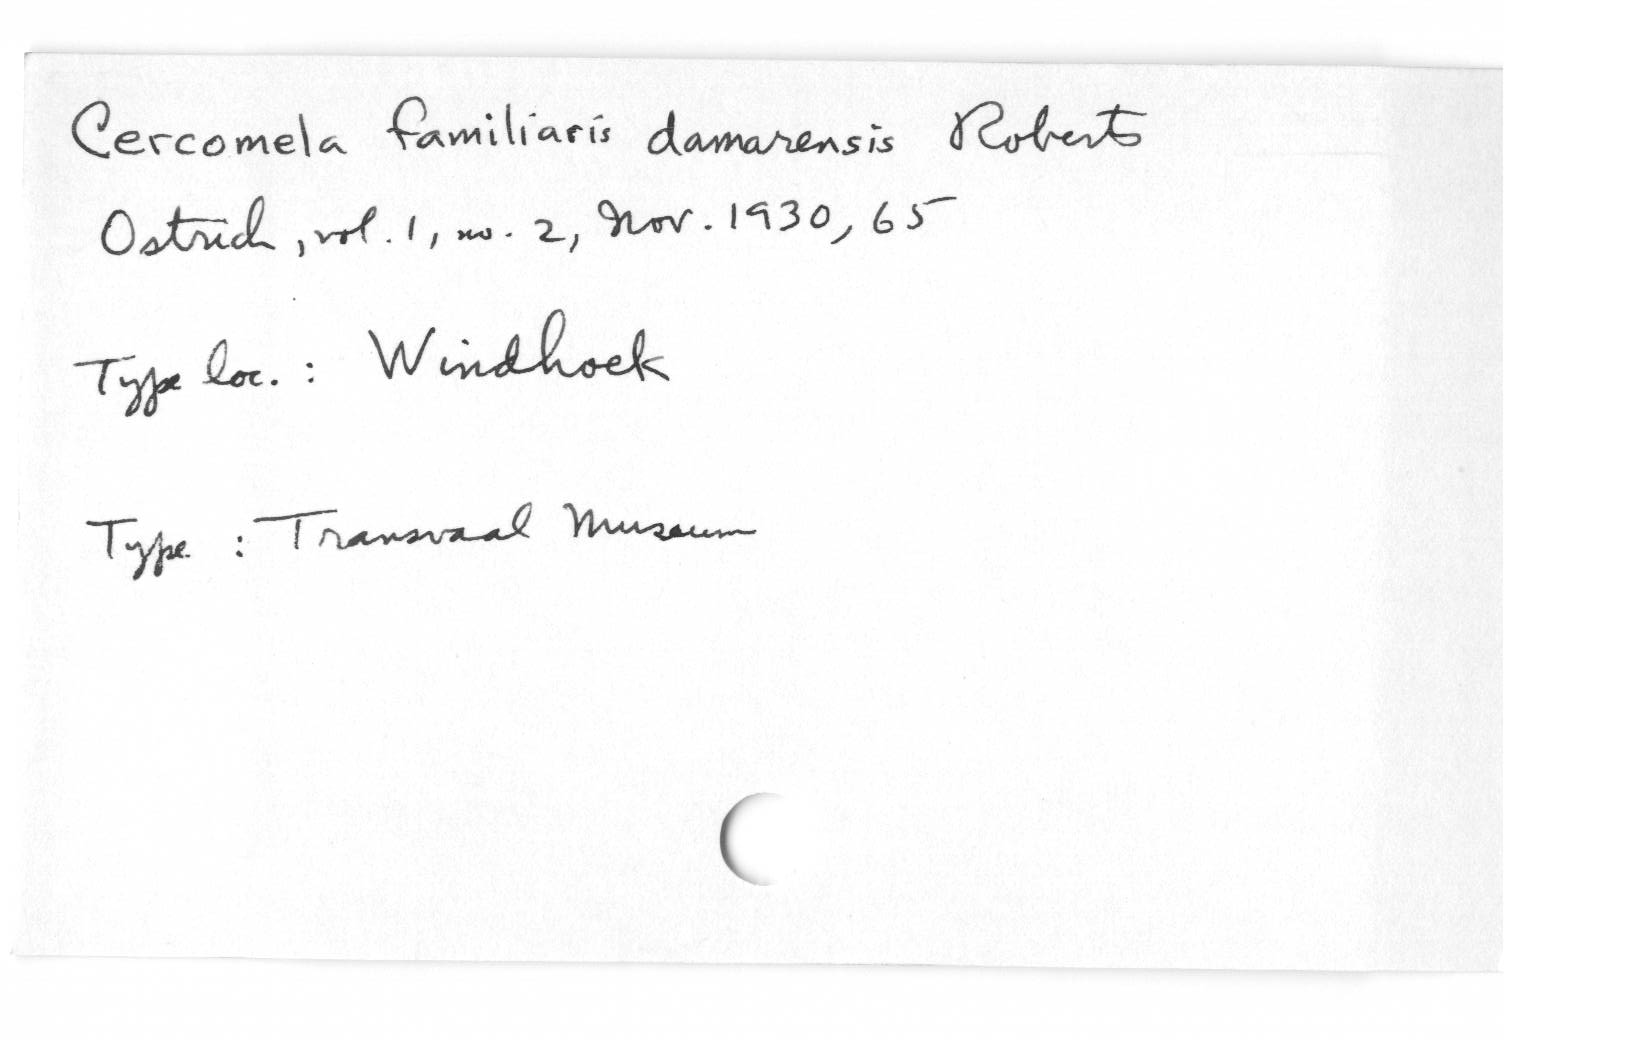 Cercomela familiaris damarensis Roberts
Ostrich, vol. 1, no. 2, Nov. 1930, 65
Type loc. : Windhoek
Type : Transvaal Museum